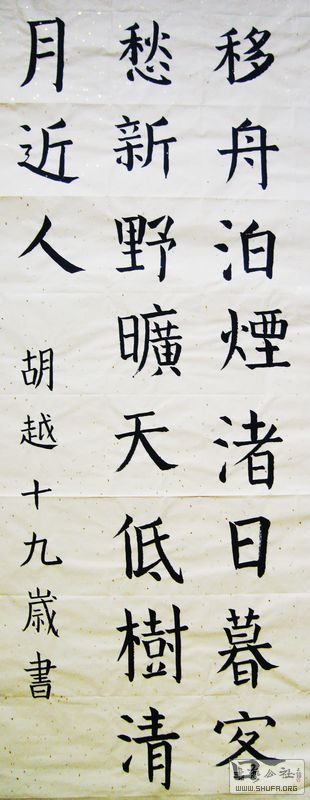 移舟泊煙渚日暮客
愁新野曠天低樹清
月近人
胡越十九歲書
WWW.SHUFA.ORG